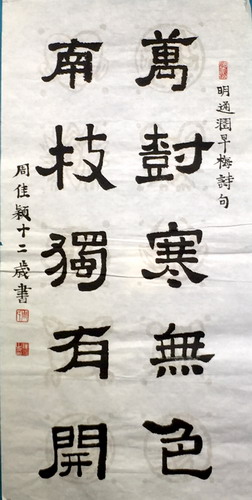 明通潤早梅詩句
萬尌寒無色
南枝獨有開
周佳穎十二歲書